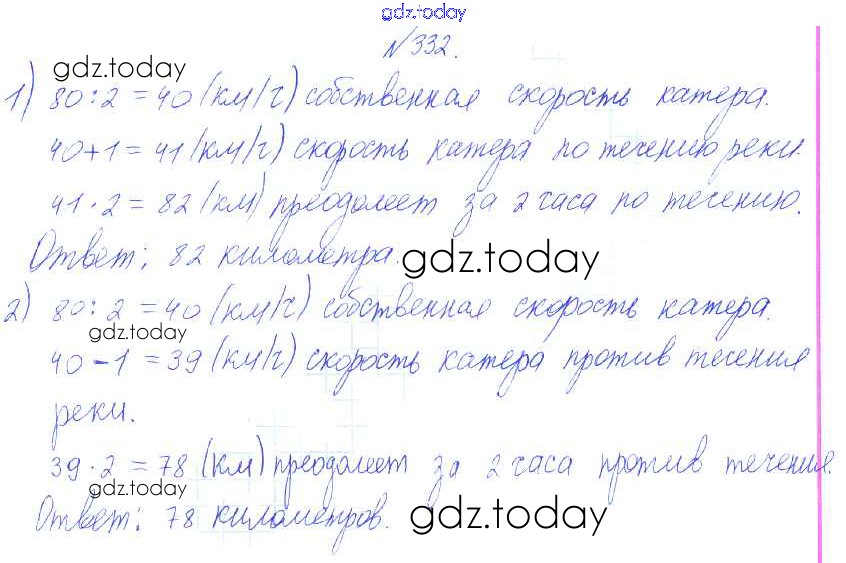 gdz.today
№332.
gdz.today
1) 80:2=40 (км/ч) собственная скорость катера.
40+1=41 (км/ч) скорость катера по течению реки.
41·2=82 (км) преодолеет за 2 часа по течению.
Ответ: 82 километра.
gdz.today
2) 80:2=40 (км/ч) собственная скорость катера.
gdz.today
40-1=39 (км/ч) скорость катера против течения
реки.
39·2=78 (км) преодолеет за 2 часа против течения.
gdz.today
Ответ: 78 километров.
gdz.today